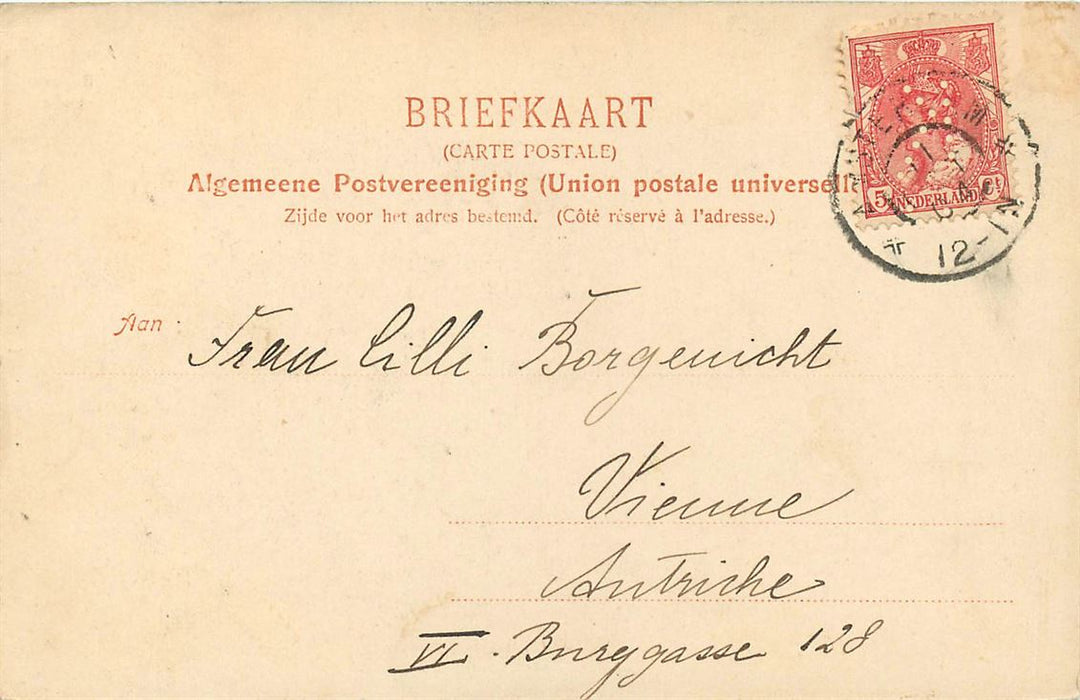 BRIEFKAART
(CARTE POSTALE)
Algemeene Postvereeniging (Union postale universell
Zijde voor het adres bestemd. (Côté réservé à l'adresse.)
5 NEDERLAND
12-1N
Aan Frau Lilli Borgenicht
Vienne
Autriche
VI. Burggasse 128